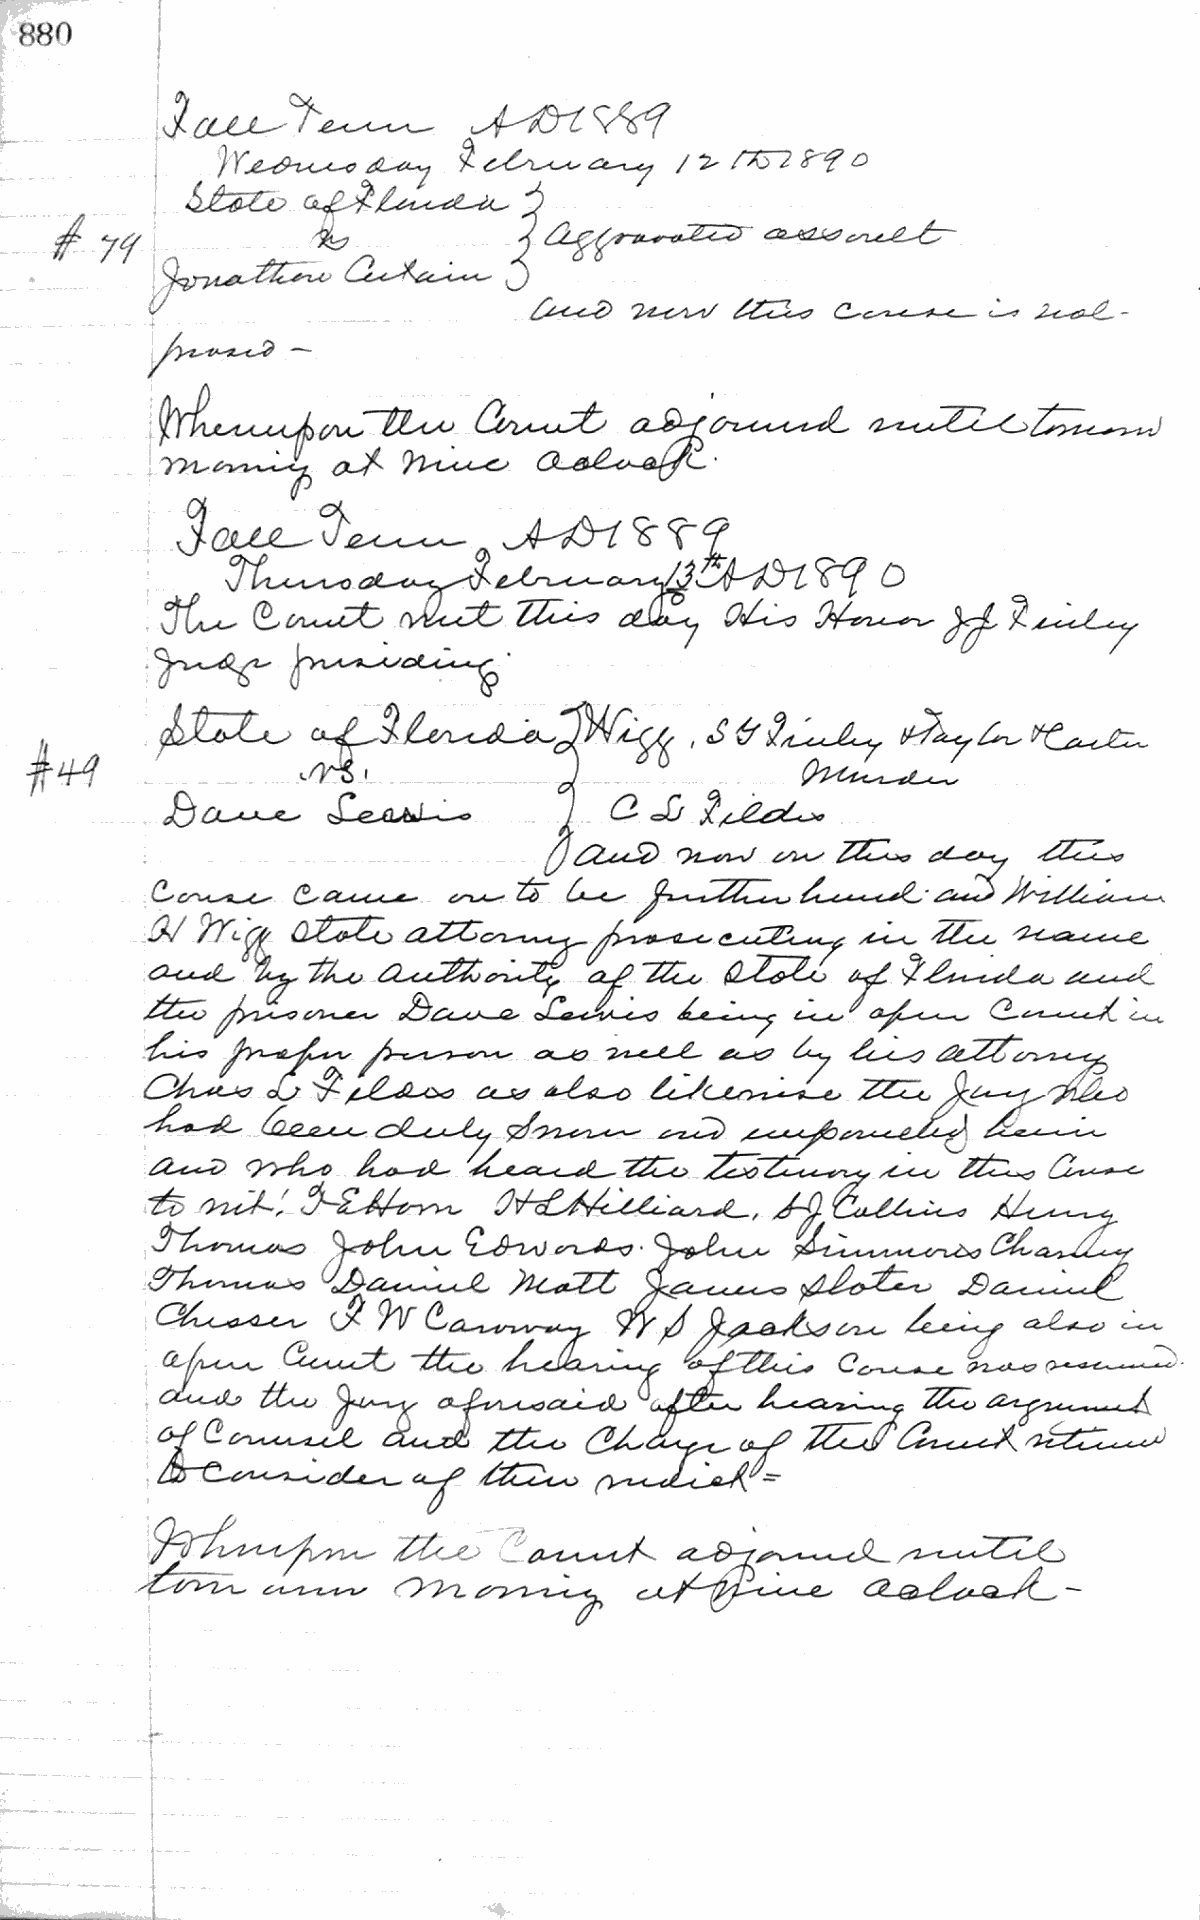 880
Fall Term A D 1889
Wednesday February 12th 1890
State of Florida
# 79 vs } Aggravated assault
Jonathan Certain
And now this cause is nol-
prosed -
Whereupon the Court adjourned until tomorrow
morning at nine oclock.
Fall Term A D 1889
Thursday February 13th A D 1890
The Court met this day His Honor J J Finley
Judge presiding.
State of Florida } Wigg, S Y Finley & Taylor & Carter
#49 vs. Murder
Dave Lewis } C L Fildes
And now on this day this
Cause came on to be further heard and William
H Wigg State attorney prosecuting in the name
and by the authority of the State of Florida and
the prisoner Dave Lewis being in open Court in
his proper person as well as by his attorney
Chas L Fildes as also likewise the Jury who
had been duly sworn and empaneled herein
and who had heard the testimony in this Cause
to wit: T E Horn H L Hilliard, S J Collins Henry
Thomas John Edwards. John Simmons Charley
Thomas Daniel Mott James Slater Daniel
Chesser F W Caroway W S Jackson being also in
open Court the hearing of this Cause was resumed.
and the Jury aforesaid after hearing the argument
of Counsel and the Charge of the Court retired
to consider of their verdict =
Whereupon the Court adjourned until
tomorrow morning at Nine oclock -